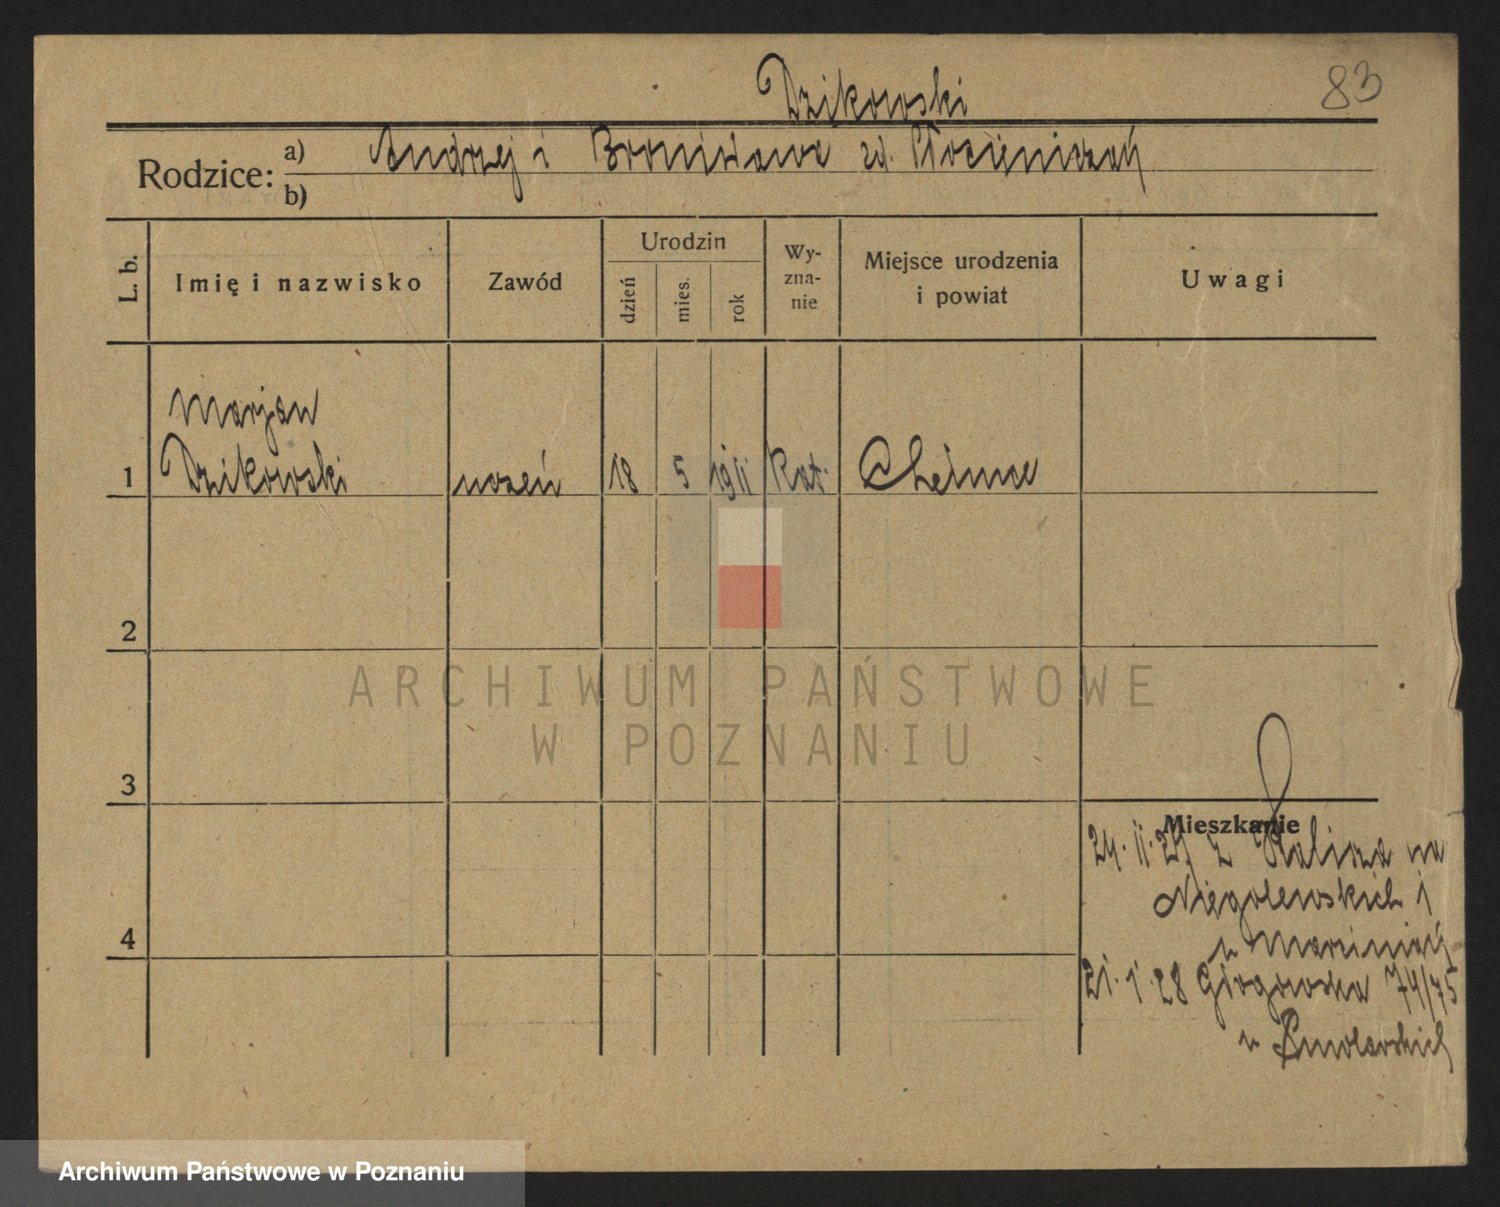 Dzikowski
83
Rodzice: a) Andrzej i Bronisława zd.
b)
L. b.
Imię i nazwisko
Zawód
Urodzin
dzień
mies.
rok
Wy-
zna-
nie
Miejsce urodzenia
i powiat
Uwagi
Marjan
1 Dzikowski uczeń 18 5 1911 Kat.
2
3
4
Mieszkanie
24. II. 27 z Kalisza na
Niegolewskich 1
u
21. 1. 28 Głogowska 74/75
u
ARCHIWUM PAŃSTWOWE
W POZNANIU
Archiwum Państwowe w Poznaniu